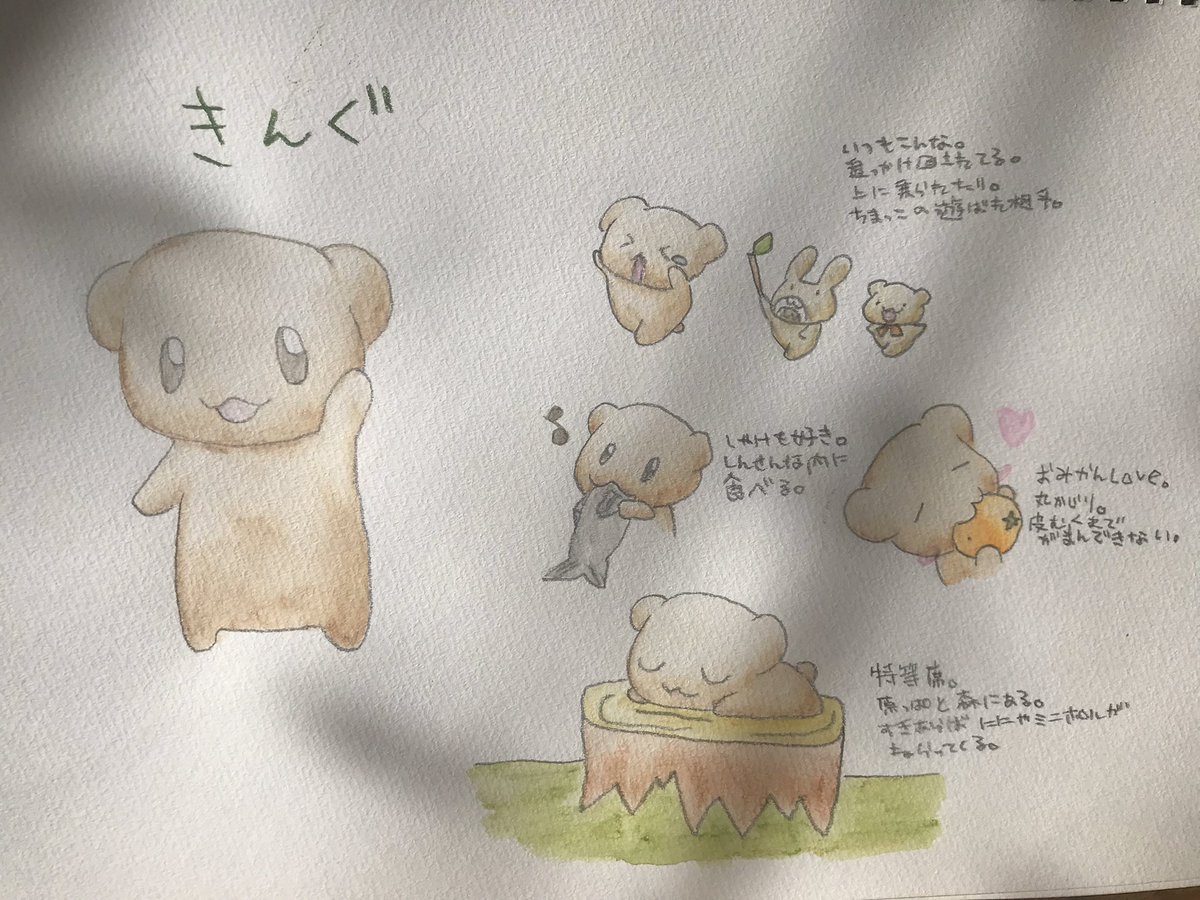 きんぐ
いつもこんな。
追っかけ回されてる。
上に乗られたり。
ちまっこの遊ばれ相手。
しゃけも好き。
しんせんな内に
食べる。
おみかんLove。
丸かじり。
皮むくまで
がまんできない。
特等席。
原っぱと森にある。
すきあらば ににやミニホルが
ってくる。